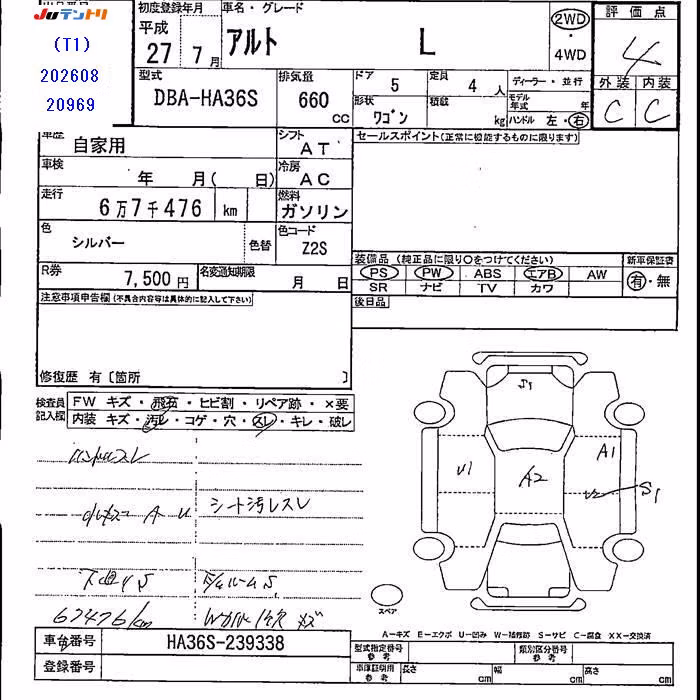 JUテントリ
(T1)
202608
20969
初度登録年月
平成
27 7月
車名・グレード
アルト L
2WD
・
4WD
評価点
4
外装 内装
C C
型式
DBA-HA36S
排気量
660
CC
ドア
5
定員
4 人
ディーラー・並行
形状
ワゴン
積載
kg
モデル年式 年
ハンドル 左・右
車歴
自家用
シフト
AT
セールスポイント(正常に機能するものに限ります)
車検
年 月( 日)
冷房
AC
走行
6万7千476 km
燃料
ガソリン
色
シルバー
色替
色コード
Z2S
装備品 (純正品に限り○をつけてください)
新車保証書
PS PW ABS エアB AW
有・無
SR ナビ TV カワ
R券
7,500円
名変通知期限
月 日
後日品
注意事項申告欄(不具合内容等は具体的に記入して下さい)
修復歴 有〔箇所 〕
検査員記入欄
FW キズ・飛石・ヒビ割・リペア跡・×要
内装 キズ・汚レ・コゲ・穴・スレ・キレ・破レ
シート汚レスレ
67476km
S1
A1
U1
A2
U2
S1
スペア
A−キズ E−エクボ U−凹み W−補修跡 S−サビ C−腐食 XX−交換済
車台番号
HA36S-239338
登録番号
型式指定番号
参考
類別区分番号
参考
車庫証明用
参考
長さ cm
幅 cm
高さ cm